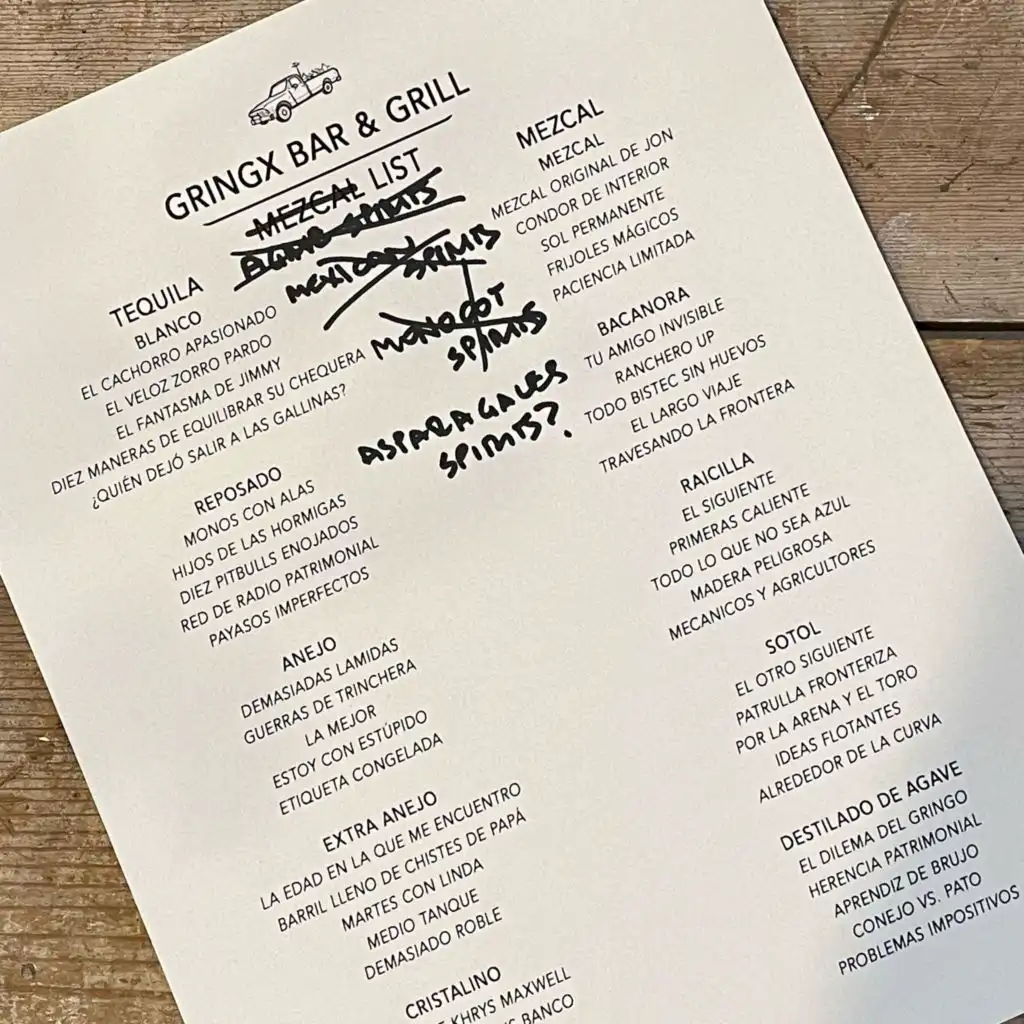 GRINGX BAR & GRILL
MEZCAL LIST
AGAVE SPIRITS
MEXICAN SPIRITS
MONOCOT
SPIRITS
ASPARAGALES
SPIRITS?
TEQUILA
BLANCO
EL CACHORRO APASIONADO
EL VELOZ ZORRO PARDO
EL FANTASMA DE JIMMY
DIEZ MANERAS DE EQUILIBRAR SU CHEQUERA
¿QUIÉN DEJÓ SALIR A LAS GALLINAS?
REPOSADO
MONOS CON ALAS
HIJOS DE LAS HORMIGAS
DIEZ PITBULLS ENOJADOS
RED DE RADIO PATRIMONIAL
PAYASOS IMPERFECTOS
ANEJO
DEMASIADAS LAMIDAS
GUERRAS DE TRINCHERA
LA MEJOR
ESTOY CON ESTÚPIDO
ETIQUETA CONGELADA
EXTRA ANEJO
LA EDAD EN LA QUE ME ENCUENTRO
BARRIL LLENO DE CHISTES DE PAPÁ
MARTES CON LINDA
MEDIO TANQUE
DEMASIADO ROBLE
CRISTALINO
KHRYS MAXWELL
BANCO
MEZCAL
MEZCAL
MEZCAL ORIGINAL DE JON
CONDOR DE INTERIOR
SOL PERMANENTE
FRIJOLES MÁGICOS
PACIENCIA LIMITADA
BACANORA
TU AMIGO INVISIBLE
RANCHERO UP
TODO BISTEC SIN HUEVOS
EL LARGO VIAJE
TRAVESANDO LA FRONTERA
RAICILLA
EL SIGUIENTE
PRIMERAS CALIENTE
TODO LO QUE NO SEA AZUL
MADERA PELIGROSA
MECANICOS Y AGRICULTORES
SOTOL
EL OTRO SIGUIENTE
PATRULLA FRONTERIZA
POR LA ARENA Y EL TORO
IDEAS FLOTANTES
ALREDEDOR DE LA CURVA
DESTILADO DE AGAVE
EL DILEMA DEL GRINGO
HERENCIA PATRIMONIAL
APRENDIZ DE BRUJO
CONEJO VS. PATO
PROBLEMAS IMPOSITIVOS